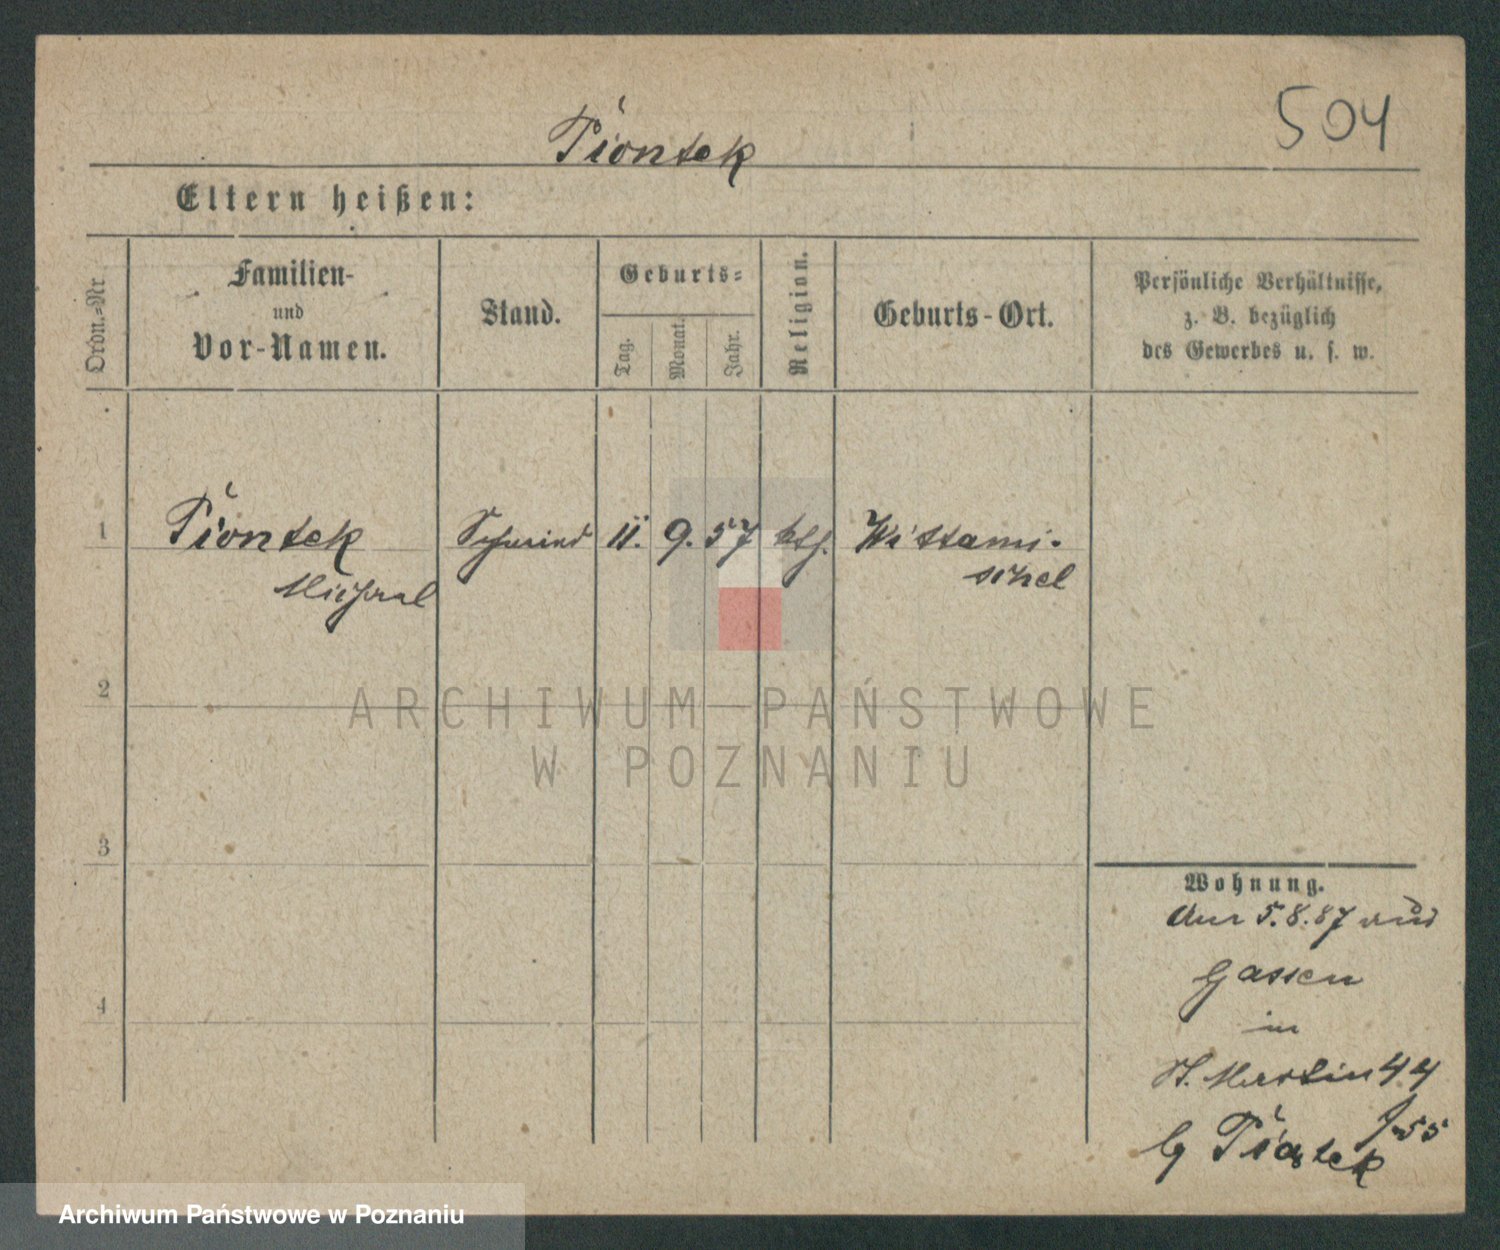 504
Piontek
Eltern heißen:
Ordn.-Nr.
Familien-
und
Vor-Namen.
Stand.
Geburts-
Tag.
Monat.
Jahr.
Religion.
Geburts-Ort.
Persönliche Verhältnisse,
z. B. bezüglich
des Gewerbes u. s. w.
1
Piontek
Michael
Schmied
11.
9.
57
kth.
2
ARCHIWUM PAŃSTWOWE
W POZNANIU
3
4
Wohnung.
5.8.87 aus
Gassen
in
St. Martin 44
Piątek
Archiwum Państwowe w Poznaniu